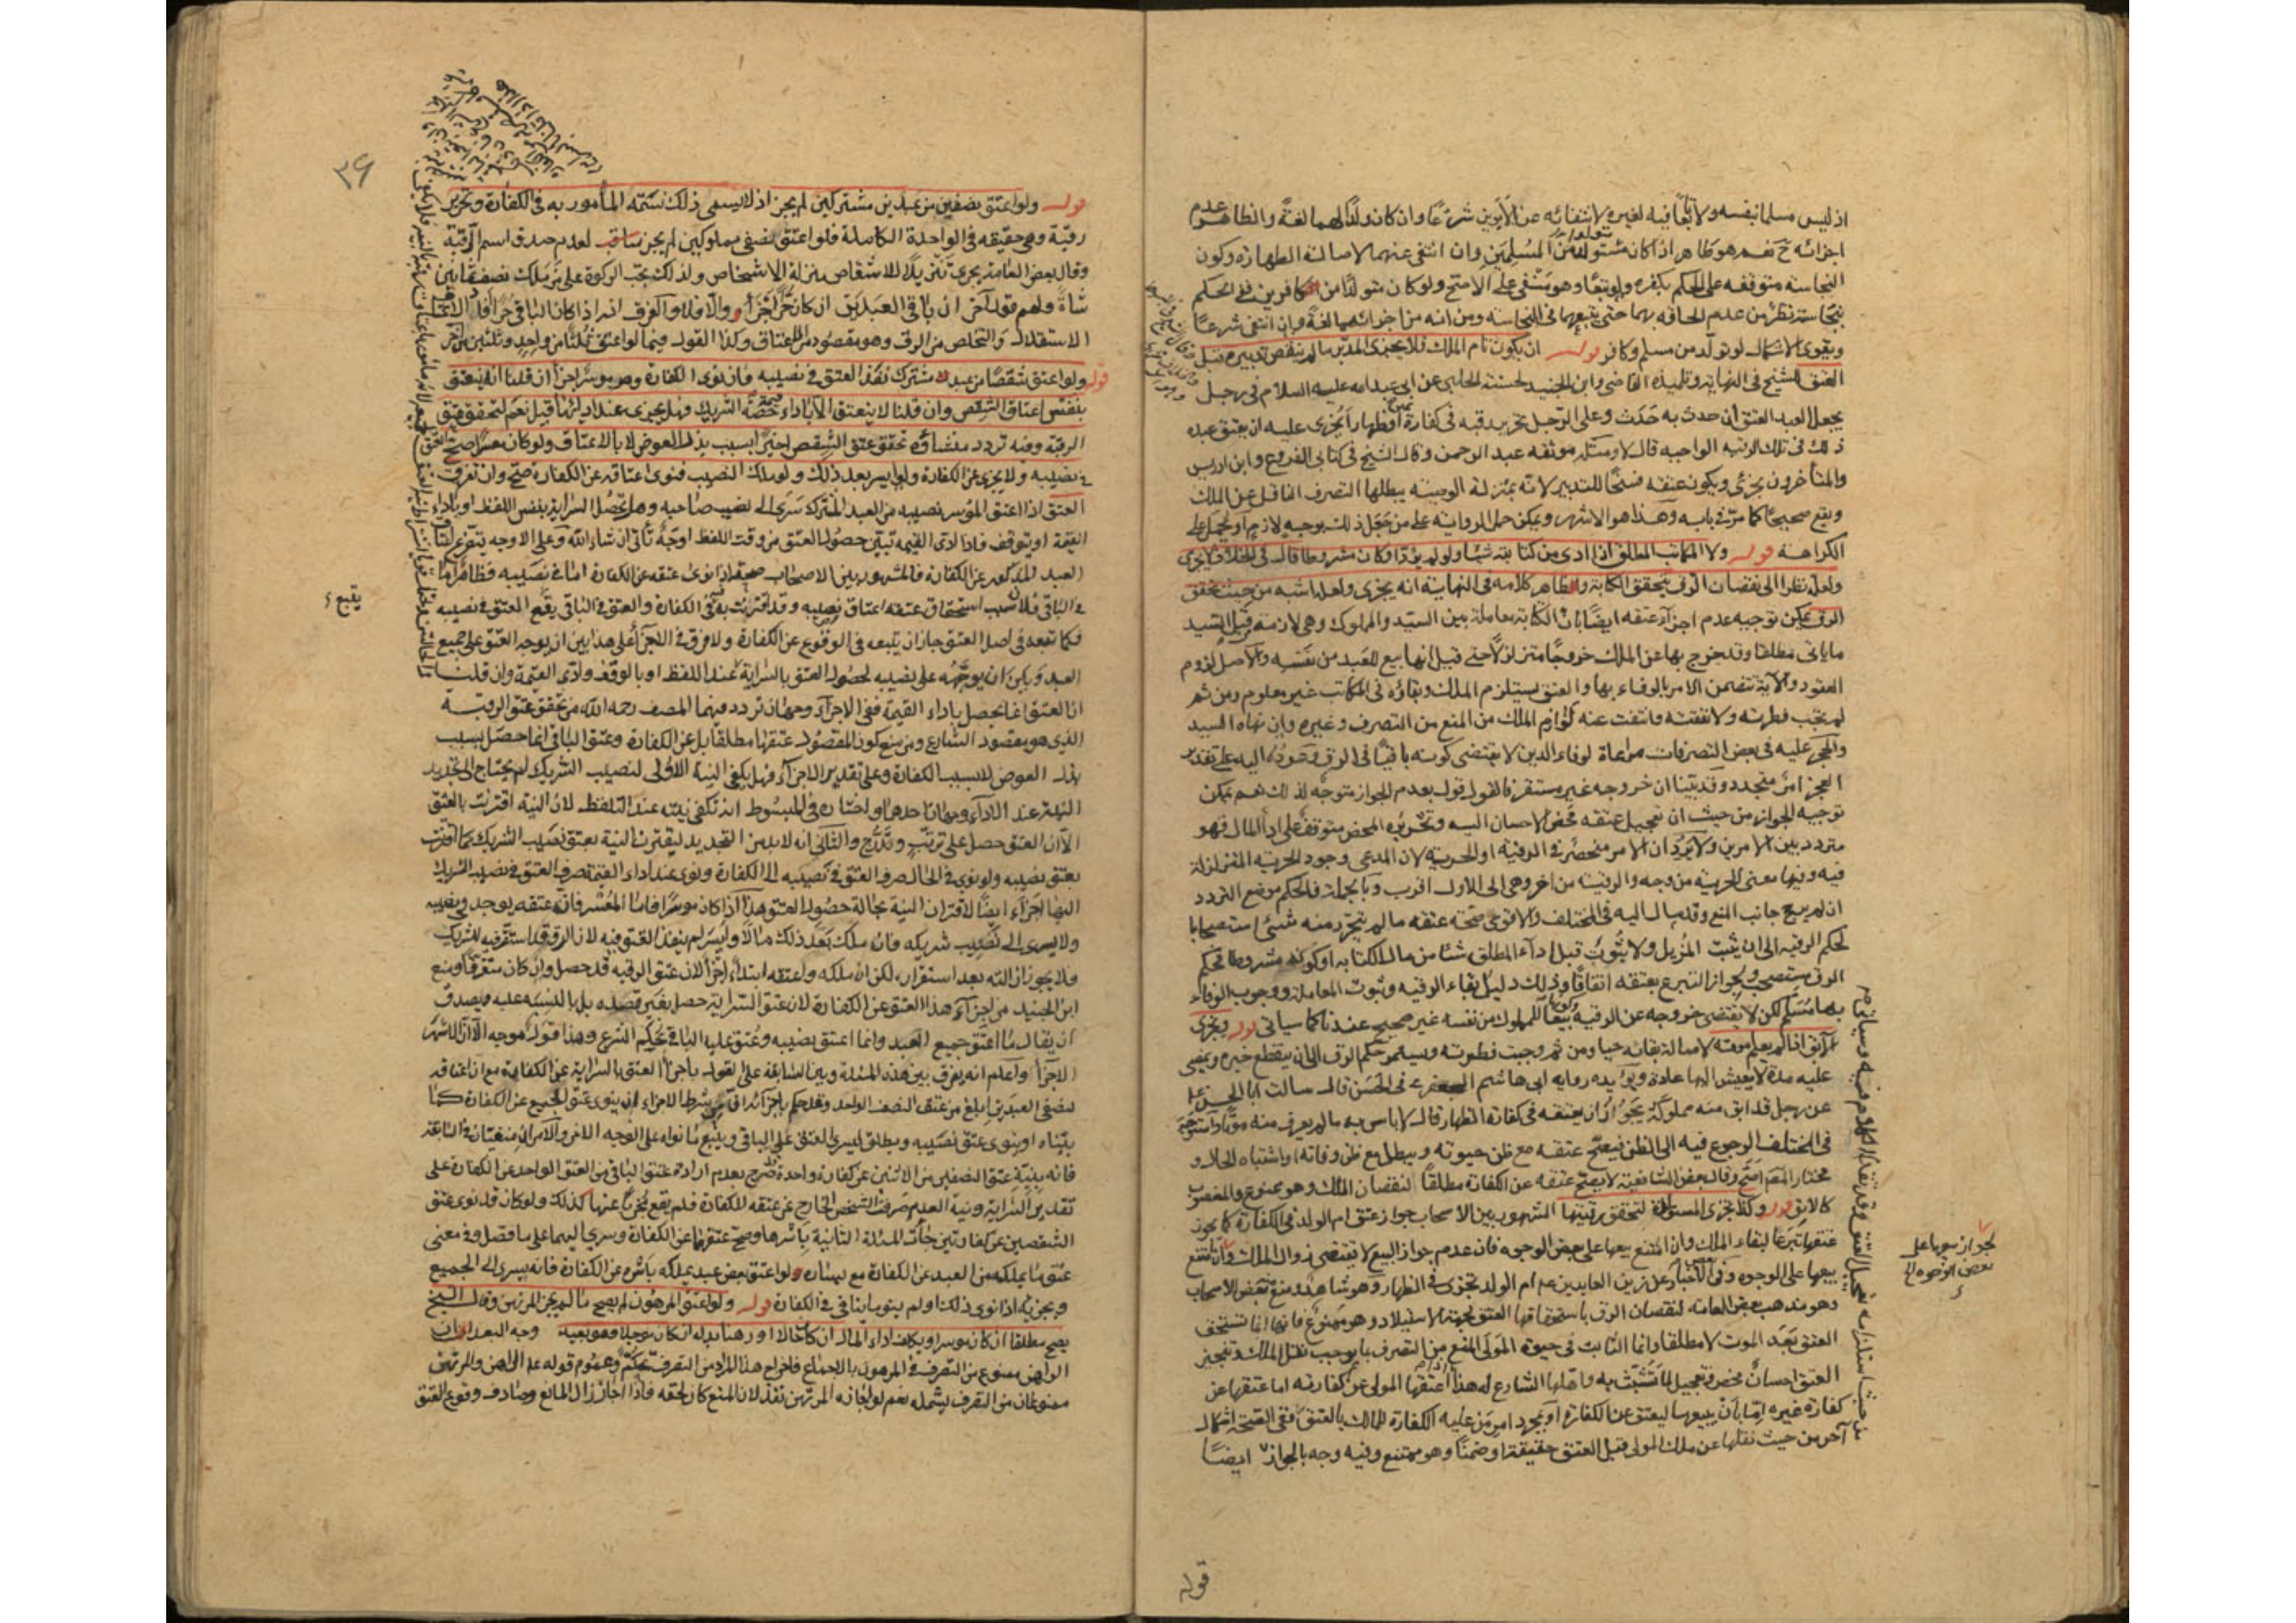 اذ ليس مسلما بنفسه ولا تابعا فيه لغيره لانتفائه عن الابوين شرعا وان كان ولدا لهما لغة والظاهر عدم
اجزائه ح نعم هو طاهر اذا كان متولدا من المسلمين وان انتفى عنهما لاصالة الطهارة وكون
النجاسة متوقفة على الحكم بكفره ولو تبعا وهو منتفى على الاصح ولو كان متولدا من كافرين ففى الحكم
بنجاسته نظر من عدم الحاقه بهما حتى يتبعهما فى النجاسة ومن انه من اجزائهما لغة وان انتفى شرعا
ويقوى الاشكال لو تولد من مسلم وكافر قوله ان يكون تام الملك فلا يجزى المدبر ما لم ينقض تدبيره قبل
العتق الشيخ فى النهاية وتلميذه القاضى وابن الجنيد لحسنة الحلبى عن ابى عبد الله عليه السلام فى رجل
يجعل لعبده العتق ان حدث به حدث وعلى الرجل تحرير رقبة فى كفارة او ظهار ايجزى عليه ان يعتق عبده
ذلك فى تلك الرقبة الواجبة قال لا ومثله موثقة عبد الرحمن وقال الشيخ فى كتابى الفروع وابن ادريس
والمتأخرون يجزئ ويكون عتقه فسخا للتدبير لانه بمنزلة الوصية يبطلها التصرف الناقل عن الملك
ويقع صحيحا كما مر فى بابه وهذا هو الاشهر ويمكن حمل الرواية على من جعل ذلك بوجه لازم او يحمل على
الكراهة قوله ولا المكاتب المطلق اذا ادى من كتابته شيئا ولو لم يؤد او كان مشروطا قال فى الخلاف لا يجزى
ولعله نظرا الى نقصان الرق بتحقق الكتابة وظاهر كلامه فى النهاية انه يجزى ولعله اشبه من حيث تحقق
الرق يمكن توجيه عدم اجزاء عتقه ايضا بان الكتابة معاملة بين السيد والمملوك وهى لازمة من قبل السيد
ما يأتى مطلقا وقد خرج بها عن الملك خروجا متزلزلا حتى قيل انها بيع للعبد من نفسه والاصل لزوم
العقود والآية تتضمن الامر بالوفاء بها والعتق يستلزم الملك وبقاؤه فى المكاتب غير معلوم ومن ثم
لم تجب فطرته ولا نفقته وانتفت عنه لوازم الملك من المنع من التصرف وغيره وان نهاه السيد
والحجر عليه فى بعض التصرفات مراعاة لوفاء الدين لا يقتضى كونه باقيا فى الرق وعوده اليه على تقدير
العجز امر متجدد وقد بينا ان خروجه غير مستقر فالقول قول بعدم الجواز متوجه لذلك نعم يمكن
توجيه الجواز من حيث ان تعجيل عتقه محض الاحسان اليه وتحريره المحض متوقف على اداء المال فهو
متردد بين الامرين ولا يرد ان الامر منحصر فى الرقية او الحرية لان المدعى وجود الحرية المتزلزلة
فيه وفيها معنى الحرية من وجه والرقية من آخر وهى الى الاول اقرب وبالجملة فالحكم موضع التردد
ان لم يرجح جانب المنع وقد مال اليه فى المختلف والاقوى صحة عتقه ما لم يتحرر منه شئ استصحابا
لحكم الرقية الى ان يثبت المزيل ولا ثبوت قبل اداء المطلق شيئا من مال الكتابة او كونه مشروطا فحكم
الرق مستصحب ولجواز التبرع بعتقه اتفاقا وذلك دليل بقاء الرقية وثبوت المعاملة ووجوب الوفاء
بها مسلم لكن لا يقتضى خروجه عن الرقية وكونها بيعا للمملوك من نفسه غير صحيح عندنا كما سيأتى قوله ويجزى
الآبق اذا لم يعلم موته لاصالة بقائه حيا ومن ثم وجبت فطرته ويستمر حكم الرق الى ان ينقطع خبره ويمضى
عليه مدة لا يعيش اليها عادة ويؤيده رواية ابى هاشم الجعفرى فى الحسن قال سالت ابا الحسن ع
عن رجل قد ابق منه مملوكه يجوز ان يعتقه فى كفارة الظهار قال لا باس به ما لم يعرف منه موتا واستوجه
فى المختلف الرجوع فيه الى الظن فيصح عتقه مع ظن حيوته ويبطل مع ظن وفاته او اشتباه الحال و
مختار المصنف اصح وقال بعض الشافعية لا يصح عتقه عن الكفارة مطلقا لنقصان الملك وهو ممنوع والمغصوب
كالآبق قوله وكذا تجزى المستولدة لتحقق رقيتها المشهور بين الاصحاب جواز عتق ام الولد فى الكفارة كما يجوز
عتقها تبرعا لبقاء الملك وان امتنع بيعها على بعض الوجوه فان عدم جواز البيع لا يقتضى زوال الملك وان امتنع
بيعها على الوجوه وفى بعض الاخبار عن زين العابدين ع ام الولد تجزى فى الظهار وهو شاهد ومنع بعض الاصحاب
وهو مذهب بعض العامة لنقصان الرق باستحقاقها العتق لجهة الاستيلاد وهو ممنوع فانها انما تستحق
العتق بعد الموت لا مطلقا وانما الثابت فى حيوة المولى المنع من التصرف بما يوجب نقل الملك وتنجيز
العتق احسان محض وتعجيل لما تثبت به واهلها الشارع له هذا اذا اعتقها المولى عن كفارته اما عتقها عن
كفارة غيره اما بان يبيعها ليعتق عن الكفارة او بمجرد امر من عليه الكفارة للمالك بالعتق ففى الصحة اشكال
آخر من حيث نقلها عن ملك المولى قبل العتق حقيقة او ضمنا وهو ممتنع وفيه وجه بالجواز ايضا
لجواز بيعها على
بعض الوجوه الخ
قوله
٣٩
قوله ولو اعتق نصفين من عبدين مشتركين لم يجز اذ لا يسمى ذلك نسمة المأمور به فى الكفارة وتحرير
رقبة وهى حقيقة فى الواحدة الكاملة فلو اعتق نصفى مملوكين لم يجز لعدم صدق اسم الرقبة
وقال بعض العامة يجزى تنزيلا للاشقاص منزلة الاشخاص ولذلك تجب الزكوة على من ملك نصف ثمانين
شاة ولهم قول آخر ان باقى العبدين ان كان حرا اجزأ والا فلا والفرق انه اذا كان الباقى حرا افاد الاعتاق
الاستقلال والتخلص من الرق وهو مقصود من الاعتاق وكذا القول فيما لو اعتق ثلثا من واحد وثلثين من آخر
قوله ولو اعتق شقصا من عبد مشترك نفذ العتق فى نصيبه فان نوى الكفارة وهو موسر اجزأ ان قلنا انه ينعتق
بنفس اعتاق الشقص وان قلنا لا ينعتق الا باداء قيمة حصة الشريك وهل يجزى عند ادائها قيل نعم لتحقق عتق
الرقبة وفيه تردد منشاؤه تحقق عتق الشقص اخيرا بسبب بذل العوض لا بالاعتاق ولو كان معسرا صح العتق
فى نصيبه ولا يجزى عن الكفارة ولو ايسر بعد ذلك ولو ملك النصيب فنوى اعتاقه عن الكفارة صح وان تفرق
العتق اذا اعتق الموسر نصيبه من العبد المشترك سرى الى نصيب صاحبه وهل تحصل السراية بنفس اللفظ او باداء
القيمة او يتوقف فاذا ادى القيمة تبين حصول العتق من وقت اللفظ اوجه تأتى ان شاء الله وعلى الاوجه يتفرع اعتاق
العبد المذكور عن الكفارة فالمشهور بين الاصحاب صحته اذا نوى عتقه عن الكفارة اما فى نصيبه فظاهر واما
فى الباقى فلان سبب استحقاق عتقه اعتاق نصيبه وقد اقترنت به نية الكفارة والعتق فى الباقى يقع العتق فى نصيبه
فكما تبعه فى اصل العتق جاز ان يتبعه فى الوقوع عن الكفارة ولا فرق فى الاجزاء على هذا بين ان يوجه العتق على جميع
العبد وبين ان يوجهه على نصيبه لحصول العتق بالسراية عند اللفظ او بالوقف وادى القيمة وان قلنا
ان العتق انما يحصل باداء القيمة ففى الاجزاء وجهان تردد فيهما المصنف رحمه الله من تحقق عتق الرقبة
الذى هو مقصود الشارع ومن منع كون المقصود عتقها مطلقا بل عن الكفارة وعتق الباقى انما حصل بسبب
بذل العوض لا بسبب الكفارة وعلى تقدير الاجزاء فهل يكفى النية الاولى لنصيب الشريك ام يحتاج الى تجديد
النية عند الاداء وجهان احدهما واختاره فى المبسوط انه تكفى نيته عند التلفظ لان النية اقترنت بالعتق
الا ان العتق حصل على ترتب وتدرج والثانى انه لا بد من التجديد ليقترن النية بعتق نصيب الشريك كما اقترنت
بعتق نصيبه ولو نوى فى الحال صرف العتق فى نصيبه الى الكفارة ونوى عند اداء القيمة صرف العتق فى نصيب الشريك
اليها اجزأه ايضا لاقتران النية بحالة حصول العتق هذا اذا كان موسرا فاما المعسر فان عتقه يوجد فى نصيبه
ولا يسرى الى نصيب شريكه فان ملك بعد ذلك مالا وايسر لم ينفذ العتق فيه لان الرق قد استقر فيه للشريك
فلا يجوز ازالته بعد استقراره لكن ان ملكه واعتقه ابتداء اجزأ لان عتق الرقبة قد حصل وان كان متفرقا ومنع
ابن الجنيد من اجزاء هذا العتق عن الكفارة لان عتق السراية حصل بغير قصده بل بالنسبة عليه ويصدق
ان يقال ما اعتق جميع العبد وانما اعتق نصيبه وعتق عليه الباقى بحكم الشرع وهذا قول موجه الا ان الاشهر
الاجزاء واعلم انه يفرق بين هذه المسئلة وبين السابقة على القول باجزاء العتق بالسراية عن الكفارة مع ان اعتاقه
لنصفى العبدين ابلغ من عتق النصف الواحد وقد حكم باجزائه ان من شرط الاجزاء ان ينوى عتق الجميع عن الكفارة كما
بيناه او ينوى عتق نصيبه ويطلق ليسرى العتق على الباقى ويتبع ما نواه على الوجه الآخر والامران منفيان فى السابقة
فانه بنية عتق النصفين من الاثنين عن كفارة واحدة صرح بعدم ارادة عتق الباقى من العتق الواحد عن الكفارة على
تقدير السراية ونية العدم صرفت الشقص الخارج عن عتقه للكفارة فلم يقع مجزيا عنها كذلك ولو كان قد نوى عتق
الشقصين عن كفارتين جاءت المسئلة الثانية باسرها وصح عتقهما عن الكفارة وسرى اليهما على ما فصل وفى معنى
عتق ما يملكه من العبد عن الكفارة مع يساره ولو اعتق بعض عبد يملكه باسره عن الكفارة فانه يسرى الى الجميع
ويجزيه اذا نوى ذلك او لم ينو ما ينافى الكفارة قوله ولو اعتق المرهون لم يصح ما لم يجز المرتهن وقال الشيخ
يصح مطلقا اذا كان موسرا ويكلف اداء المال ان كان حالا او رهنا بدله ان كان مؤجلا وهو بعيد وجه البعد ان
الراهن ممنوع من التصرف فى المرهون بالاجماع فاخراج هذا الفرد من التصرف تحكم وعموم قوله ع الراهن والمرتهن
ممنوعان من التصرف يشمله نعم لو اجازه المرتهن نفذ لان المنع كان لحقه فاذا اجاز زال المانع وصادف وقوع العتق
يقع